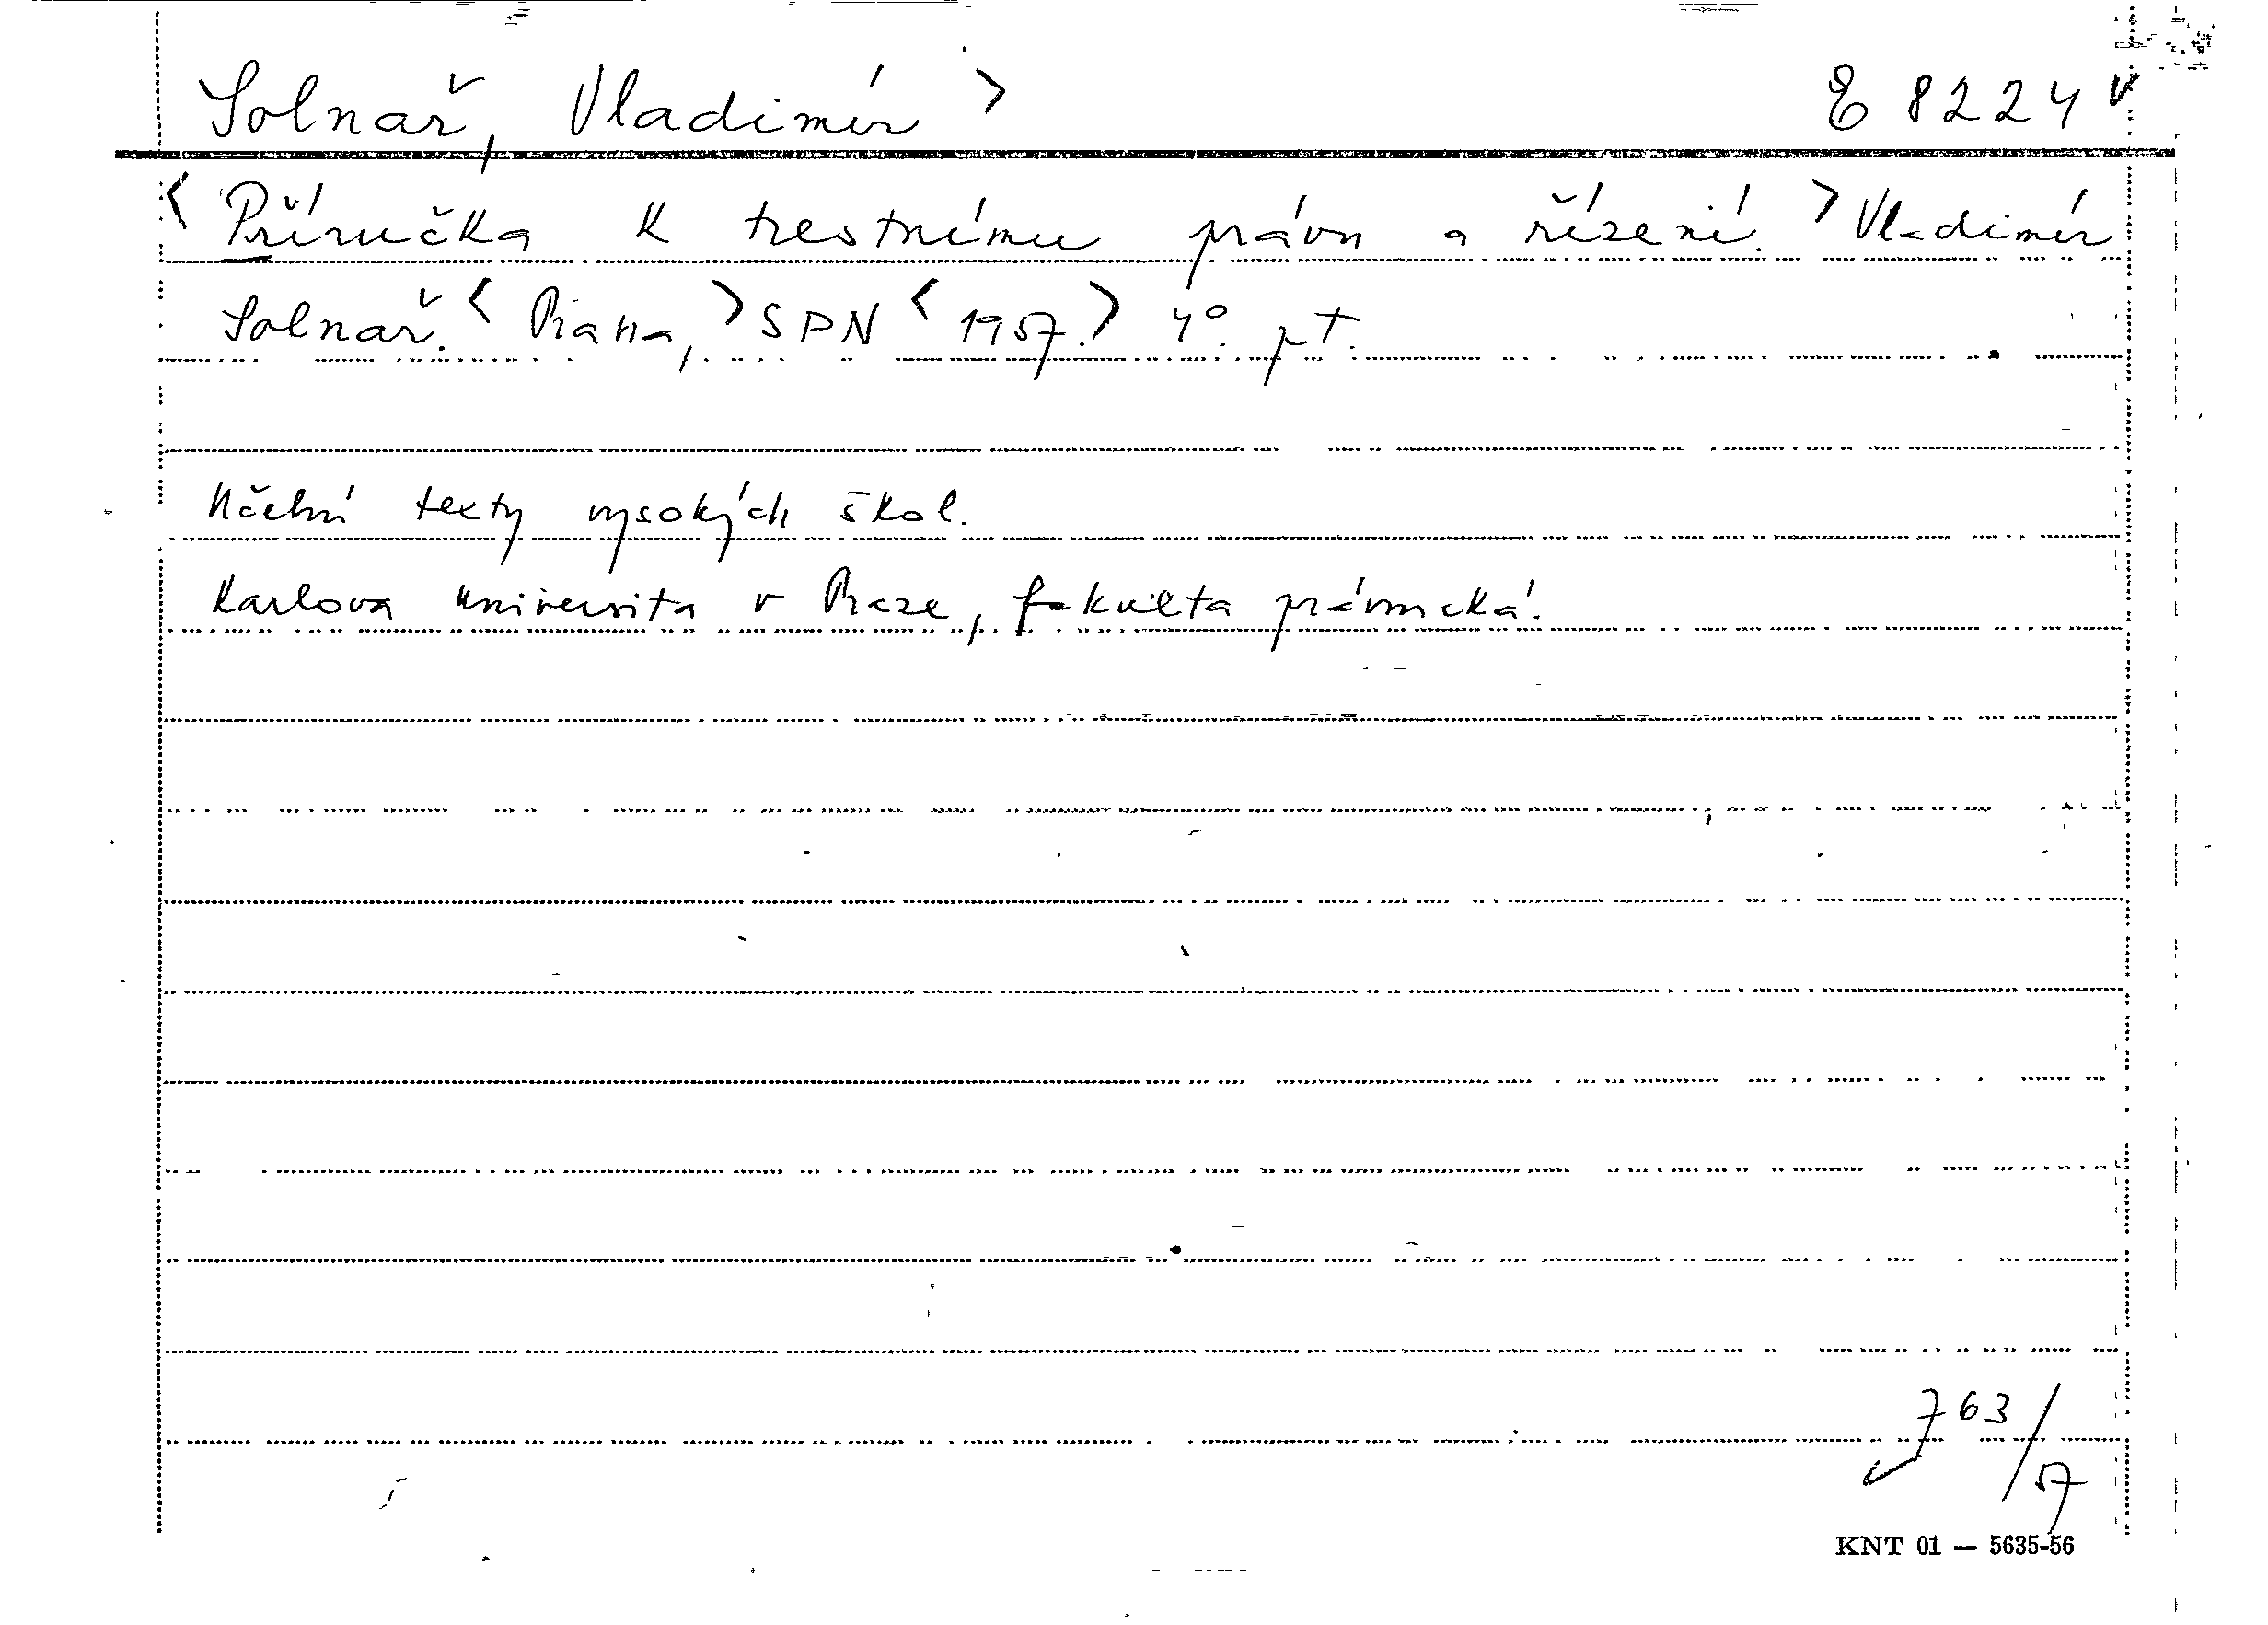 Solnař, Vladimír > E 8224
< Příručka k trestnímu právu a řízení. > Vladimír
Solnař. < Praha, > SPN < 1957. > 4°. pt.
Učební texty vysokých škol.
Karlova universita v Praze, fakulta právnická.
763/57
KNT 01 — 5635-56